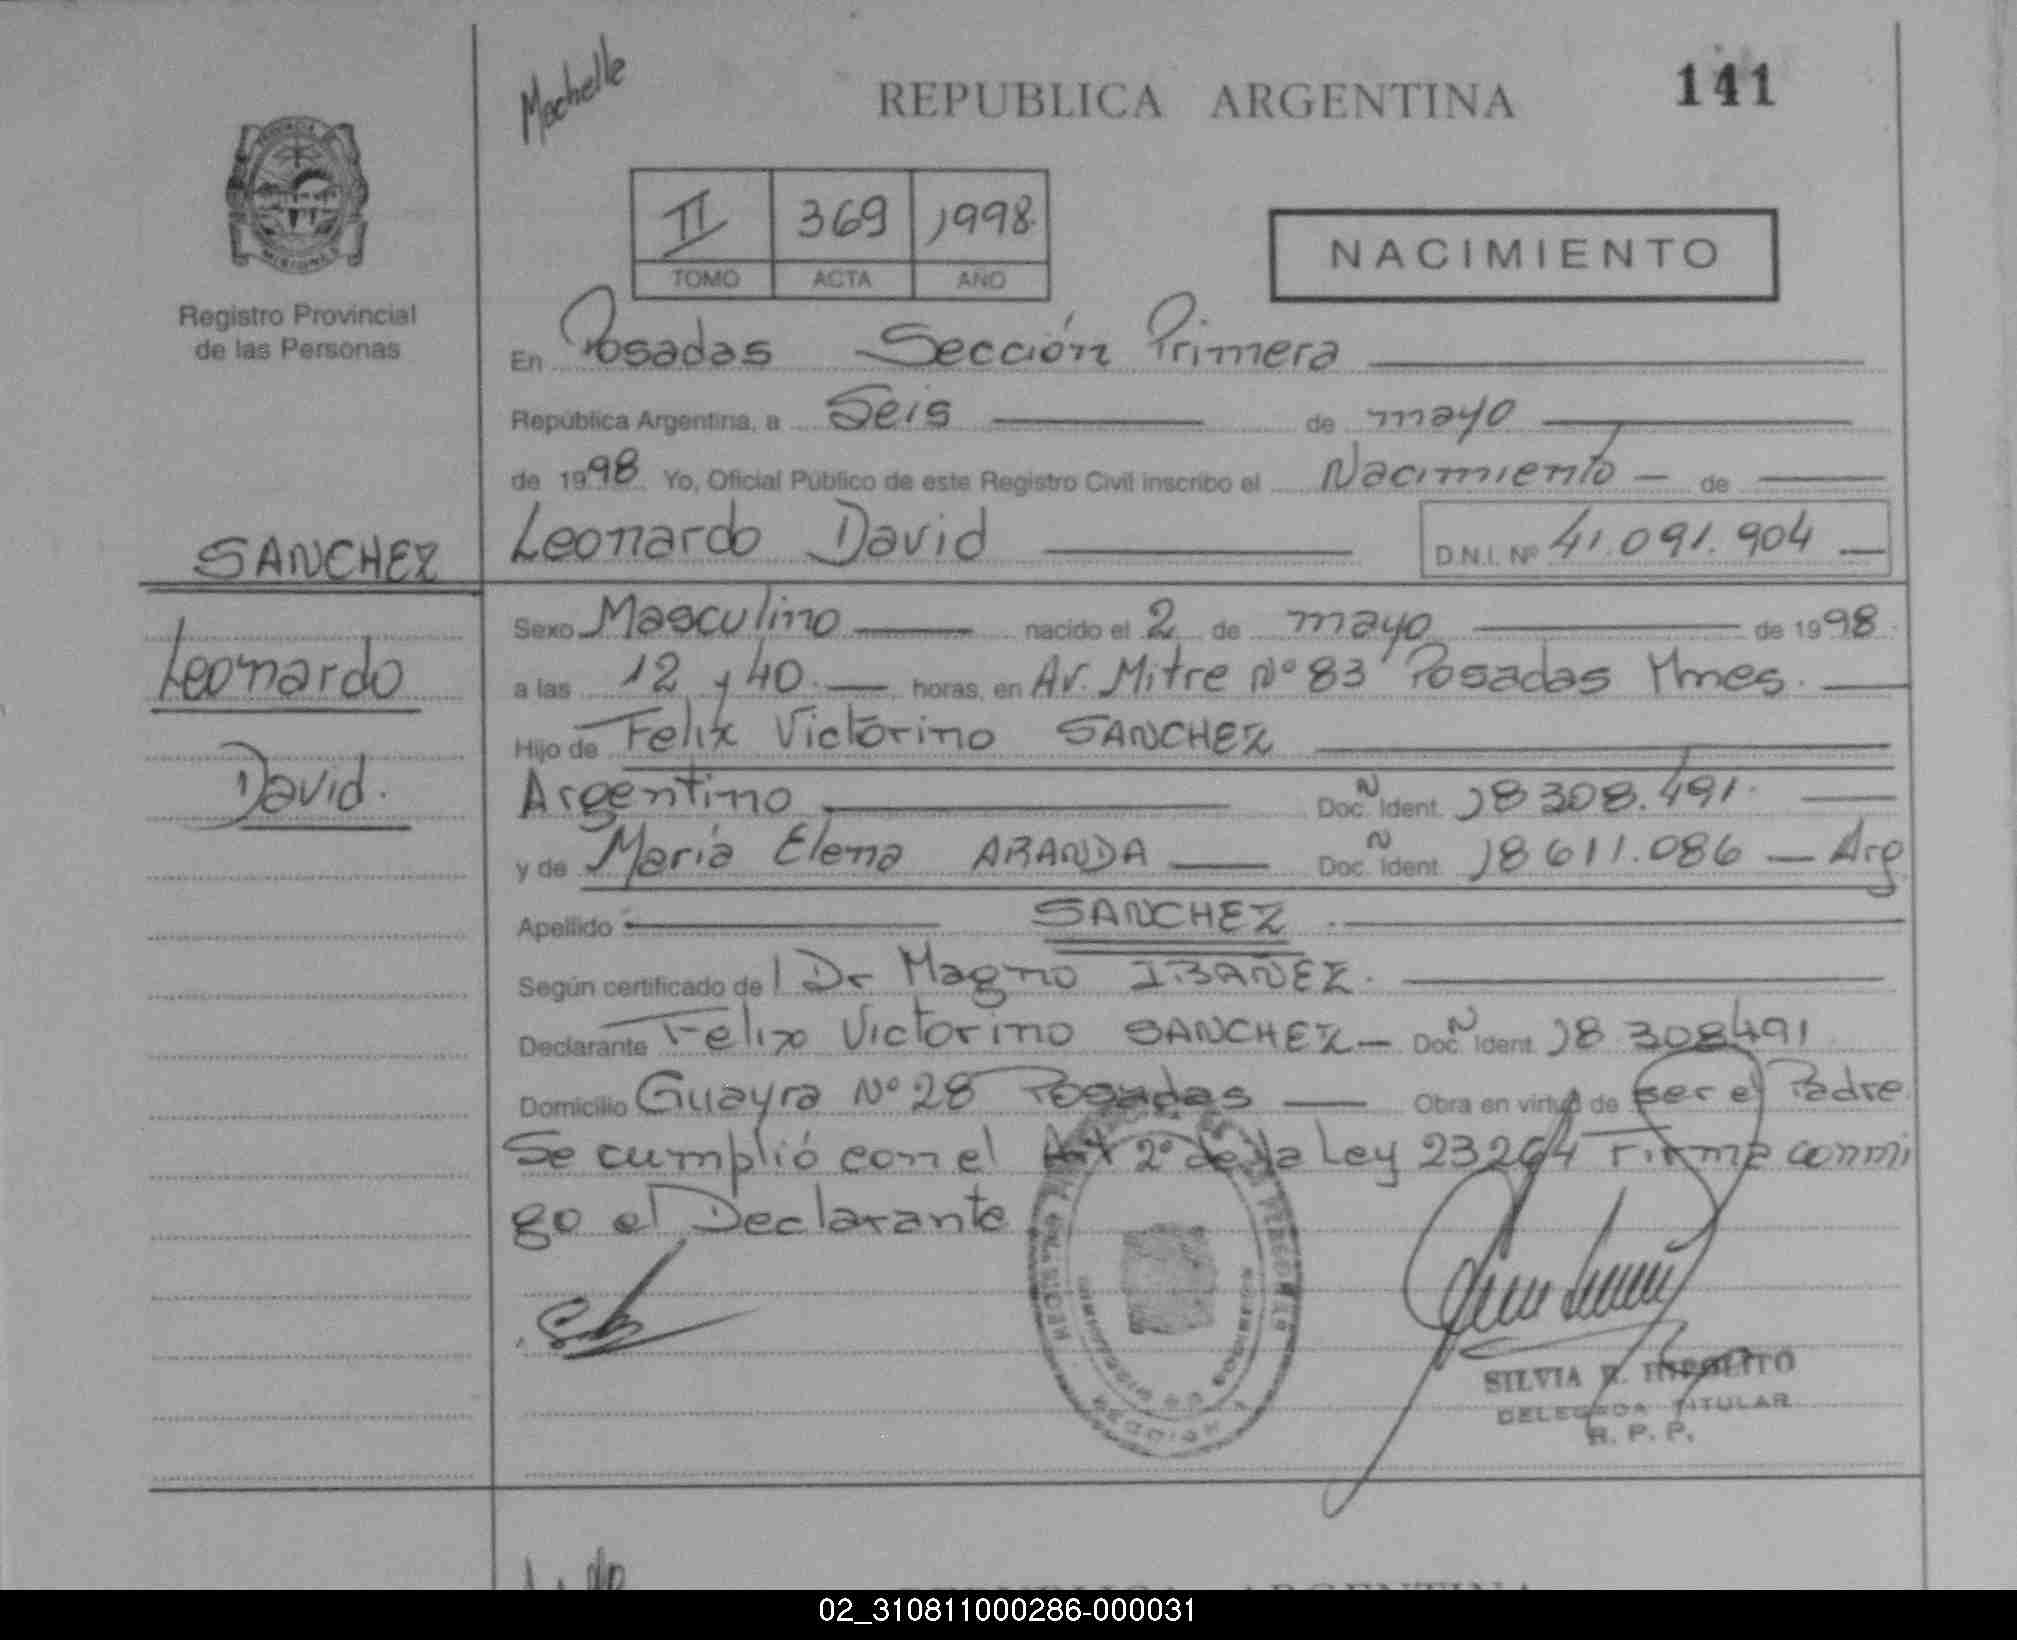 Machelle
REPUBLICA ARGENTINA
141
II 369 1998
TOMO ACTA AÑO
NACIMIENTO
MISIONES
Registro Provincial
de las Personas
En Posadas Sección Primera
República Argentina, a Seis de mayo
de 1998 Yo, Oficial Público de este Registro Civil inscribo el Nacimiento de
Leonardo David D.N.I. Nº 41.091.904
SANCHEZ
Leonardo
David.
Sexo Masculino nacido el 2 de mayo de 1998
a las 12 y 40. horas, en Av. Mitre Nº 83 Posadas Mnes.
Hijo de Felix Victorino SANCHEZ
Argentino Doc. Ident. N 18308.491.
y de Maria Elena ARANDA Doc. Ident. N 18611.086 Arg
Apellido SANCHEZ
Según certificado de l Dr Magno IBAÑEZ.
Declarante Felix Victorino SANCHEZ Doc. Ident. N 18308491
Domicilio Guayra Nº 28 Posadas Obra en virtud de ser el Padre
Se cumplió con el Art 2º de la Ley 23264 Firma conmi
go el Declarante
SILVIA R. HIPOLITO
DELEGADA TITULAR
R. P. P.
REPUBLICA ARGENTINA
02_310811000286-000031